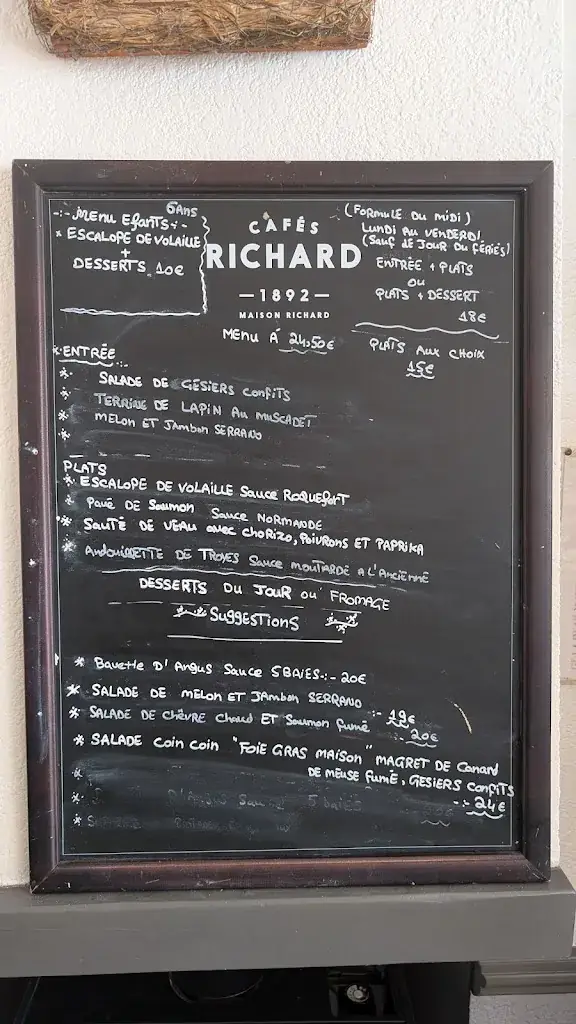 6ANS
-:- MENU EfANTS -:-
* ESCALOPE DE VOLAILLE
+
DESSERTS 10€
CAFÉS
RICHARD
— 1892 —
MAISON RICHARD
(FORMULE DU MIDI)
LUNDI AU VENDERDI
(Sauf DE JOUR DU FÉRIÉS)
ENTRÉE + PLATS
OU
PLATS + DESSERT
18€
MENU À 24,50€
PLATS AUX CHOIX
15€
* ENTRÉE
* SALADE DE GESIERS CONFITS
* TERRINE DE LAPIN AU MUSCADET
* MELON ET JAMBON SERRANO
*
PLATS
* ESCALOPE DE VOLAILLE Sauce ROQUEFORT
* PAVÉ DE SAUMON Sauce NORMANDE
* SAUTÉ DE VEAU avec CHORIZO, POIVRONS ET PAPRIKA
* ANDOUILLETTE DE TROYES Sauce MOUTARDE A L'ANCIENNE
DESSERTS DU JOUR OU FROMAGE
SUGGESTIONS
* Bavette D'Angus Sauce 5BAIES -:- 20€
* SALADE DE MELON ET JAMBON SERRANO -:- 19€
* SALADE DE CHÈVRE Chaud ET Saumon fumé -:- 20€
* SALADE COIN COIN "FOIE GRAS MAISON" MAGRET DE Canard
DE MEUSE FUMÉ, GESIERS CONFITS
-:- 24€
* D'Angus Sauce 5 BAIES
*